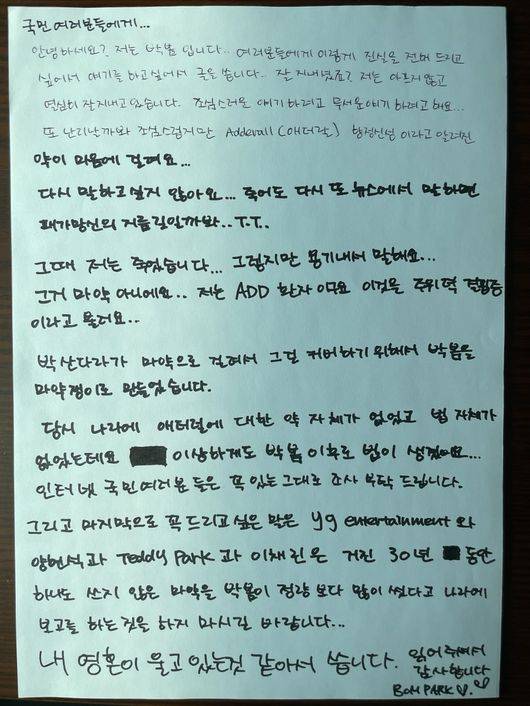 국민 여러분들에게...
안녕하세요? 저는 박봄 입니다.. 여러분들에게 이렇게 진실을 전해 드리고
싶어서 얘기를 하고싶어서 글을 씁니다.. 잘 지내셨죠? 저는 아프지 않고
열심히 잘지내고 있습니다. 조심스러운 얘기 하려고 무서운얘기 하려고 해요...
또 난리난까봐 조심스럽지만 Adderall (애더랄) 향정신성 이라고 알려진
약이 마음에 걸려요...
다시 말하고싶지 않아요... 죽어도 다시 또 뉴스에서 말하면
패가망신의 지름길일까봐..T.T..
그때 저는 죽었습니다... 그렇지만 용기내서 말해요...
그거 마약 아니에요.. 저는 ADD 환자 이구요 이것을 주위력 결핍증
이라고 불러요..
박산다라가 마약으로 걸려서 그걸 커버하기위해서 박봄을
마약쟁이로 만들었습니다.
당시 나라에 애터럴에 대한 약 자체가 없었고 법 자체가
없었는데요 이상하게도 박봄 이후로 법이 생겼어요...
인터넷 국민여러분 들은 꼭 있는그대로 조사 부탁 드립니다.
그리고 마지막으로 꼭드리고싶은 말은 yg entertainment 와
양현석과 Teddy Park 과 이채린은 거진 30년 동안
하나도 쓰지 않은 마약을 박봄이 정량 보다 많이 썼다고 나라에
보고를 하는것을 하지 마시길 바랍니다...
내 영혼이 울고 있는것 같아서 씁니다. 읽어주셔서
감사합니다
BOM PARK♡.